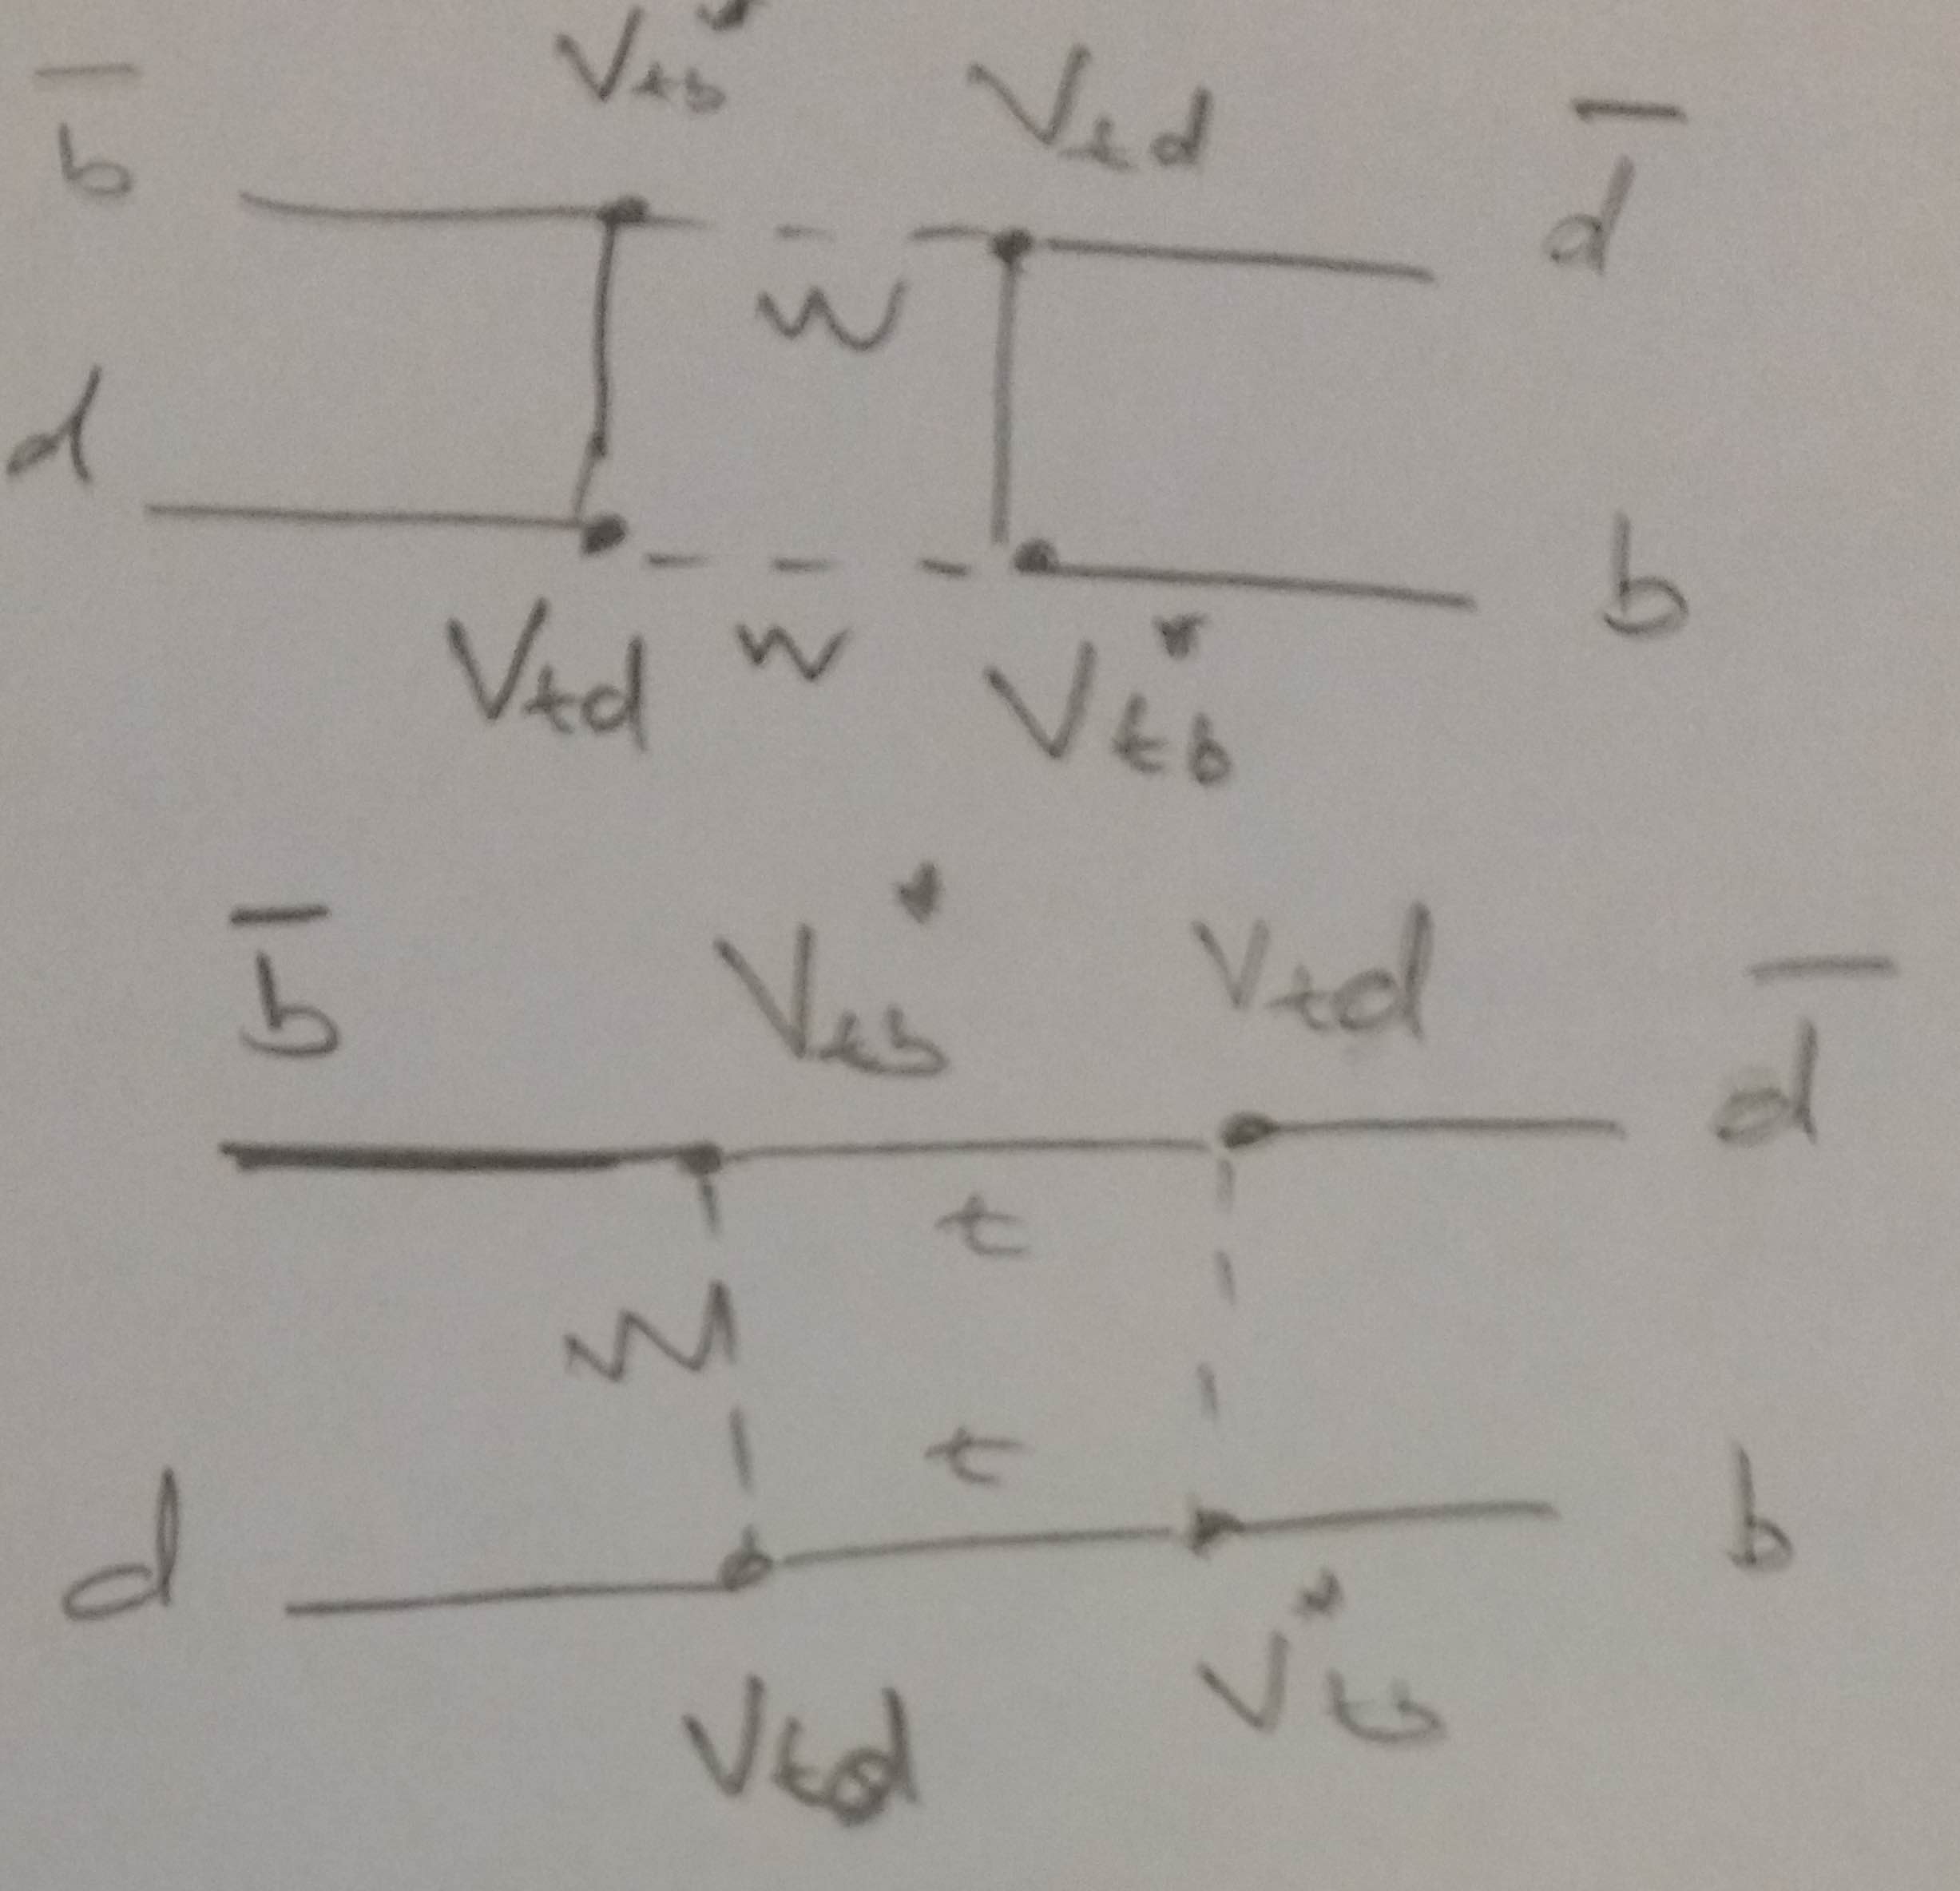 V_tb* V_td
b̄ d̄
W
d b
V_td W V_tb*
b̄ V_tb* V_td d̄
t
W
t
d b
V_td V_tb*